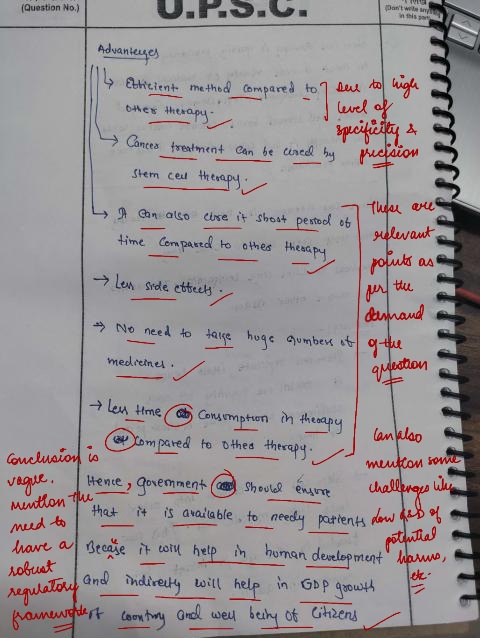 (Question No.)
U.P.S.C.
(Don't write any
in this part
Advantages
→ Efficient method compared to
other therapy.
Due to high
level of
specificity &
precision
→ Cancer treatment can be cured by
stem cell therapy.
→ It can also cure it short period of
time compared to other therapy
→ Less side effects.
→ No need to take huge numbers of
medicines.
→ Less time consumption in therapy
compared to other therapy.
These are
relevant
points as
per the
demand
of the
question
Can also
mention some
challenges like
low
of
potential
harms,
etc.
Conclusion is
vague.
mention the
need to
have a
robust
regulatory
framework
Hence, government should ensure
that it is available, to needy patients
Becase it will help in human development
and indirectly will help in GDP growth
of country and well being of citizens